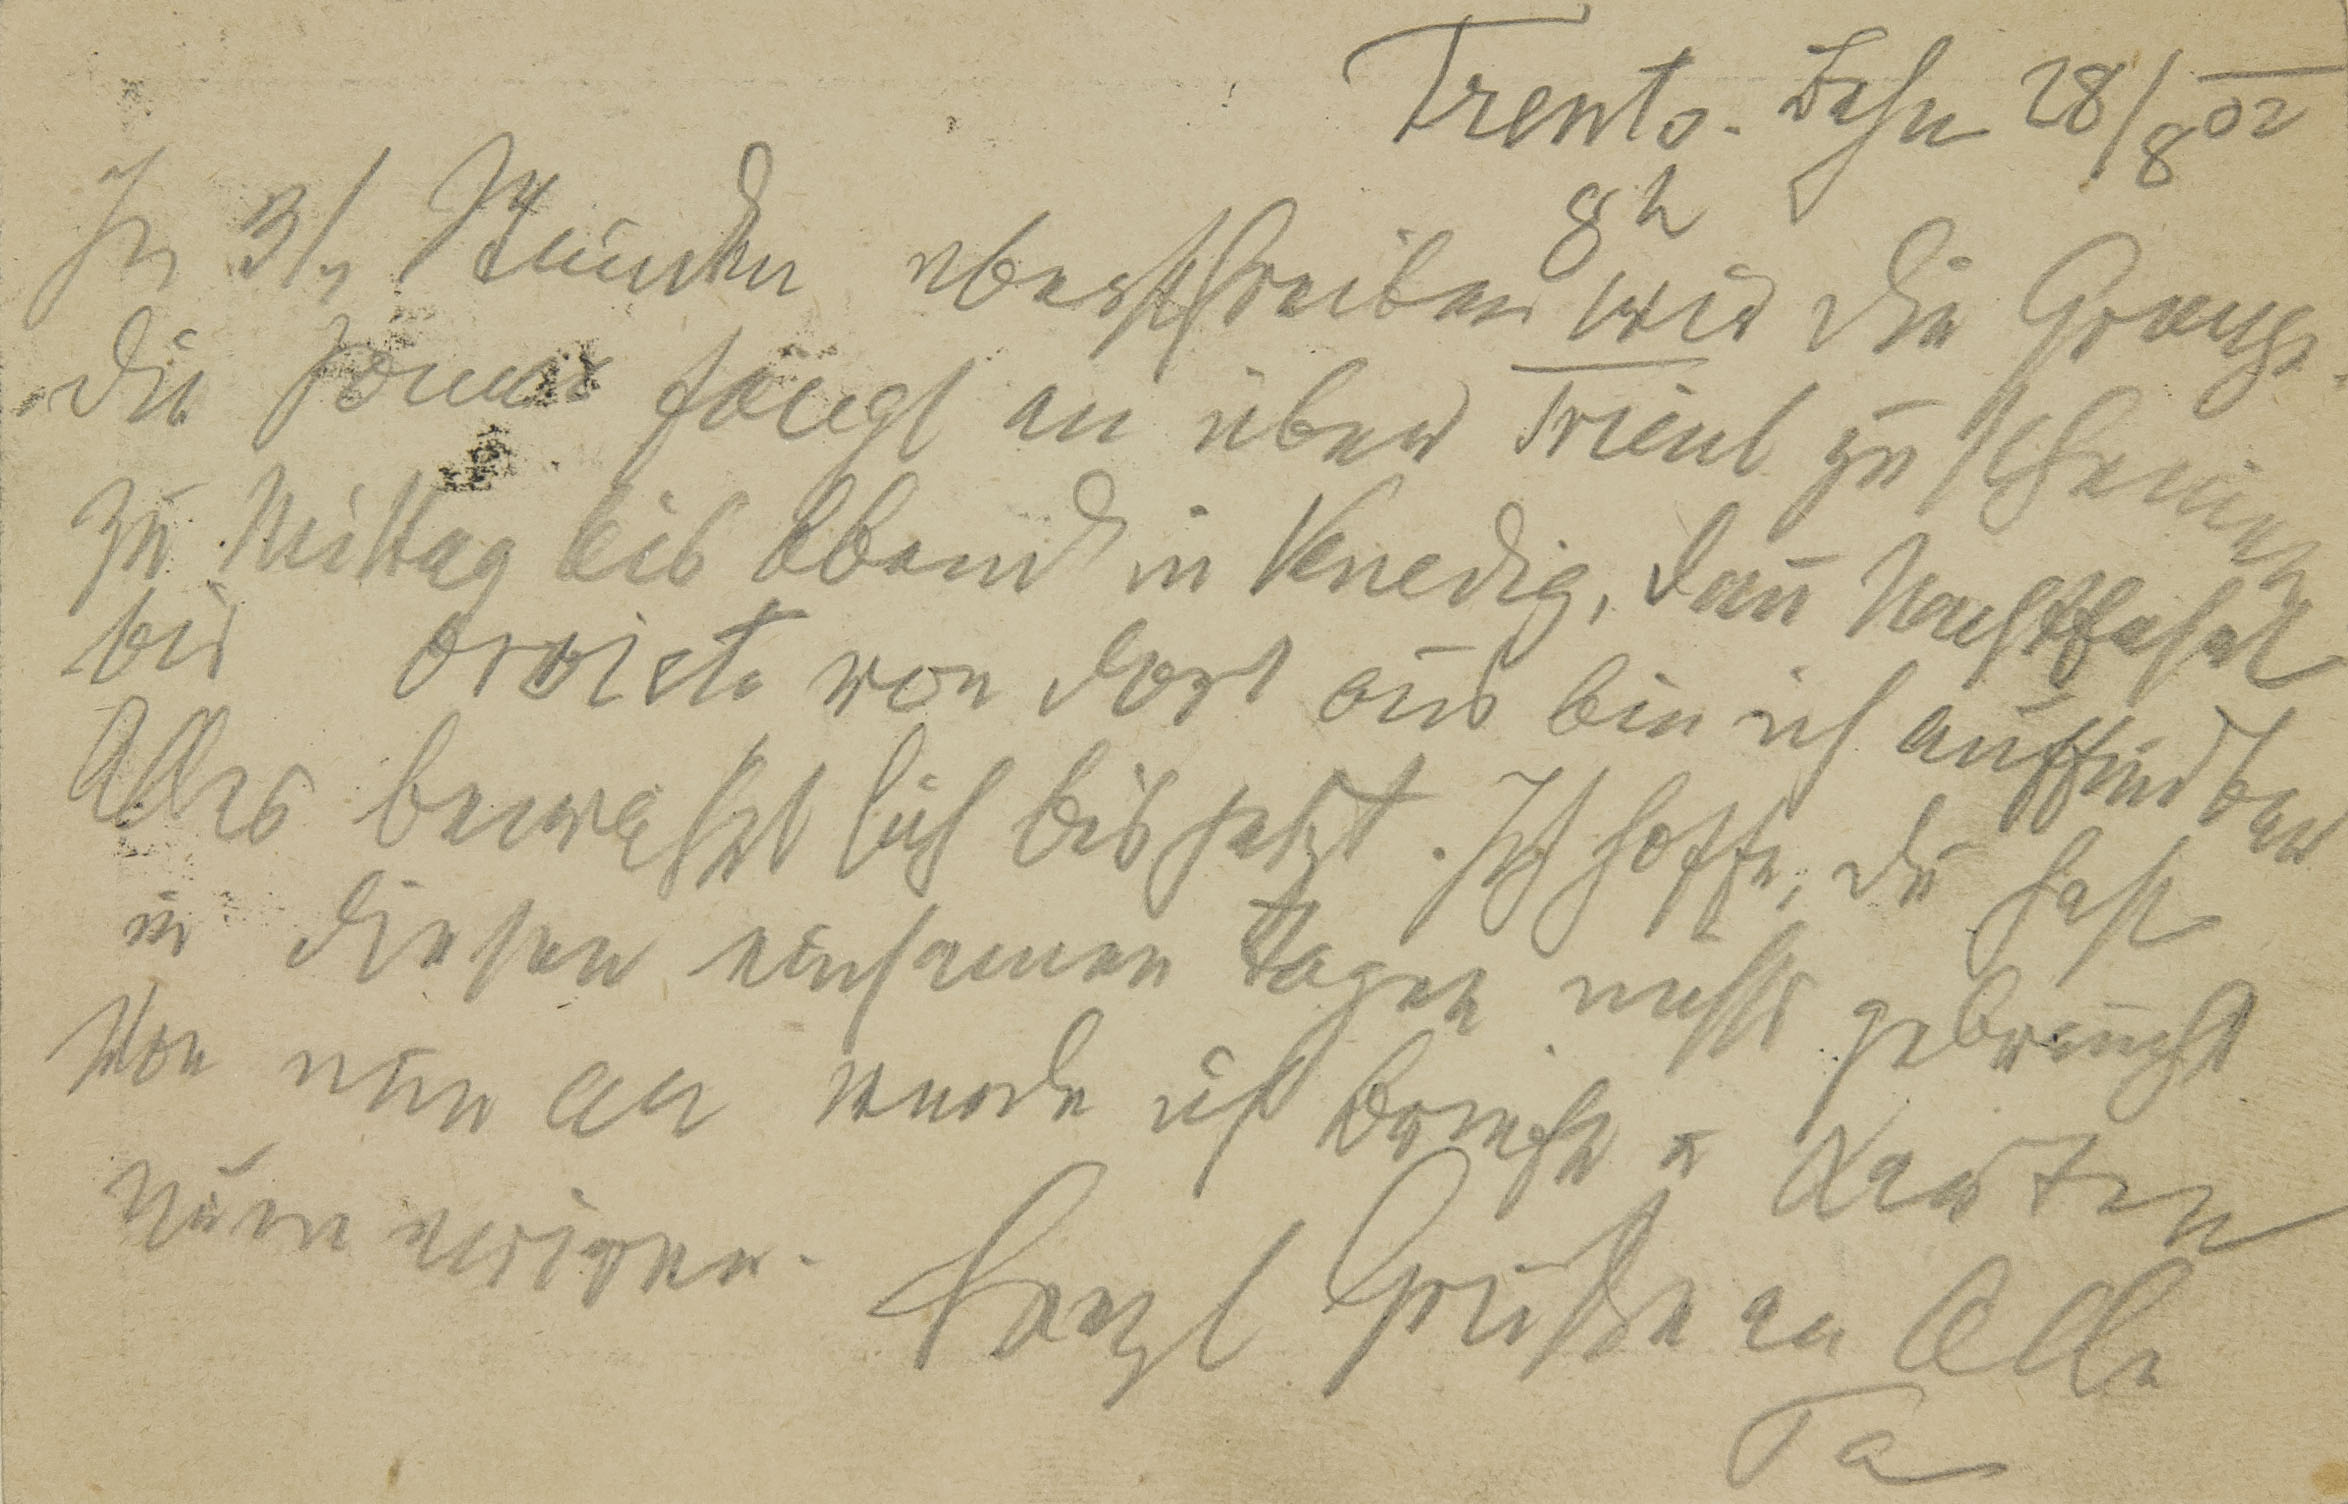 Trento. Bahn 28/8 02
8h
In 3/4 Stunden überschreiten wir die Grenze.
die Sonne fängt an über Trient zu scheinen
zu Mittag bis Abend in Venedig, dan̄ Nachtfahrt
bis Orvieto von dort aus bin ich auffindbar
Alles bewährt sich bis jetzt. Ich hoffe, du hast
in diesen einsamen Tagen nichts gebraucht
Von nun an werde ich Briefe u Karten
numerieren.
Herzl Grüße an Alle